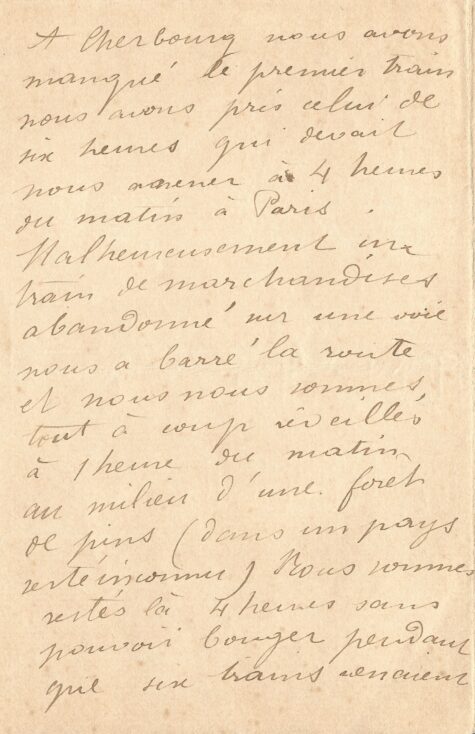 A Cherbourg nous avons
manqué le premier train
nous avons pris celui de
six heures qui devait
nous amener à 4 heures
du matin à Paris.
Malheureusement un
train de marchandises
abandonné sur une voie
nous a barré la route
et nous nous sommes
tout à coup réveillés
à 1 heure du matin
au milieu d'une foret
de pins (dans un pays
resté inconnu) Nous sommes
restés là 4 heures sans
pouvoir bouger pendant
que six trains venaient